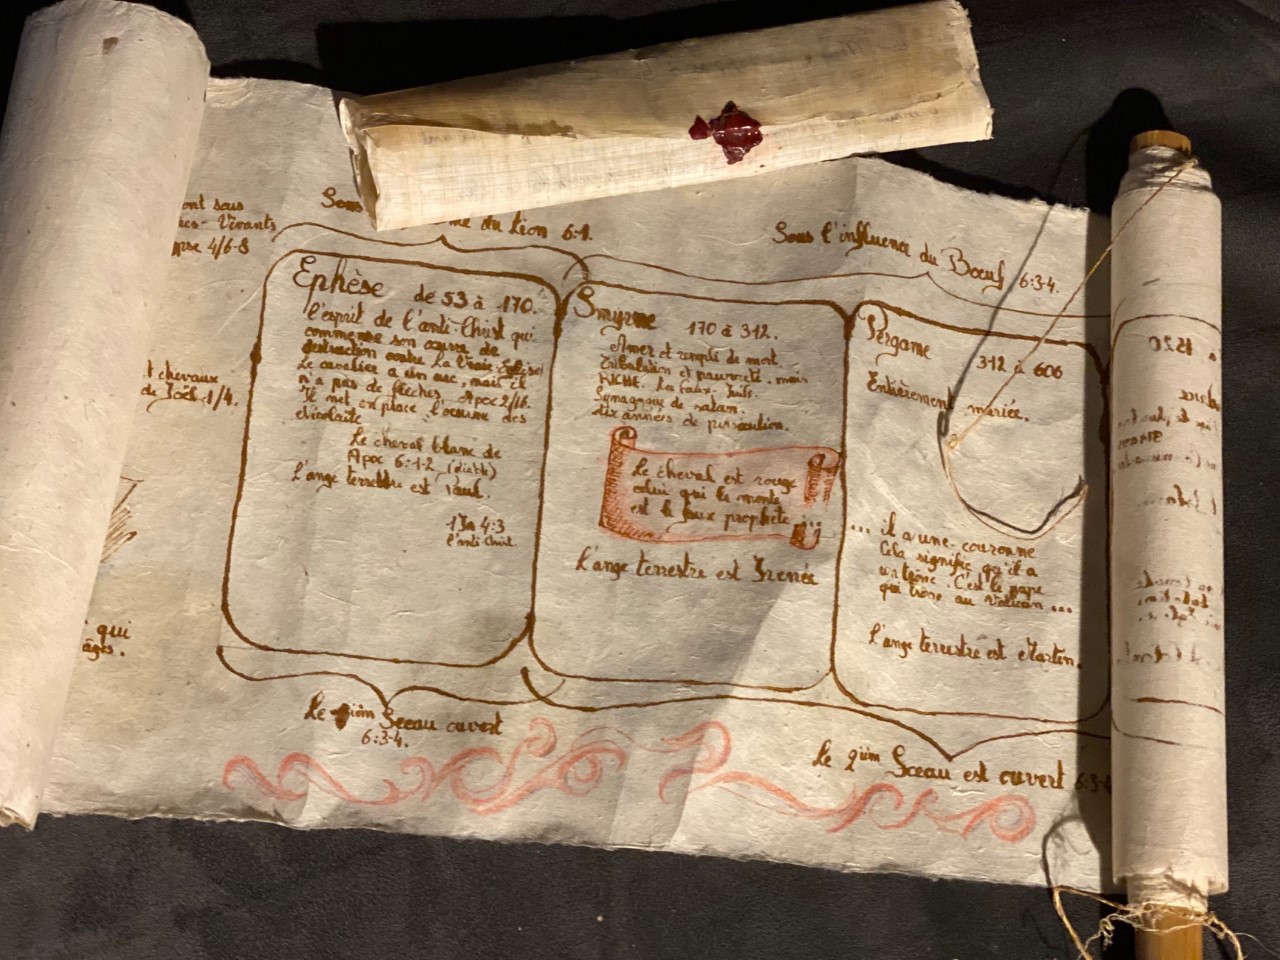 ont sous
Vivants
4/6-8
t chevaux
de Joël 1/4.
qui
âges.
Sous
du Lion 6:1.
Sous l'influence du Bœuf 6:3-4.
Ephèse de 53 à 170.
l'esprit de l'anti-Christ qui
commence son œuvre de
destruction contre La Vraie Eglise
Le cavalier a un arc, mais il
n'a pas de flèches. Apoc 2/16.
Il met en place l'œuvre des
nicolaïte
Le cheval blanc de
Apoc 6:1-2
L'ange terrestre est Paul.
1 Jn 4:3
l'anti-Christ.
Smyrne 170 à 312.
Amer et rempli de mort.
Tribulation et pauvreté. mais
RICHE. La faux. Juifs.
Synagogue de satan.
dix années de persécution.
Le cheval est rouge
celui qui le monte
est le faux prophète
L'ange terrestre est Irenée
Pergame
312 à 606
Entièrement mariée.
... il a une couronne
Cela signifie qu'il a
un trône. C'est le pape
qui trône au Vatican ...
L'ange terrestre est Martin.
Le Sceau ouvert
6:3-4.
Le 2ièm Sceau est ouvert
à 1520